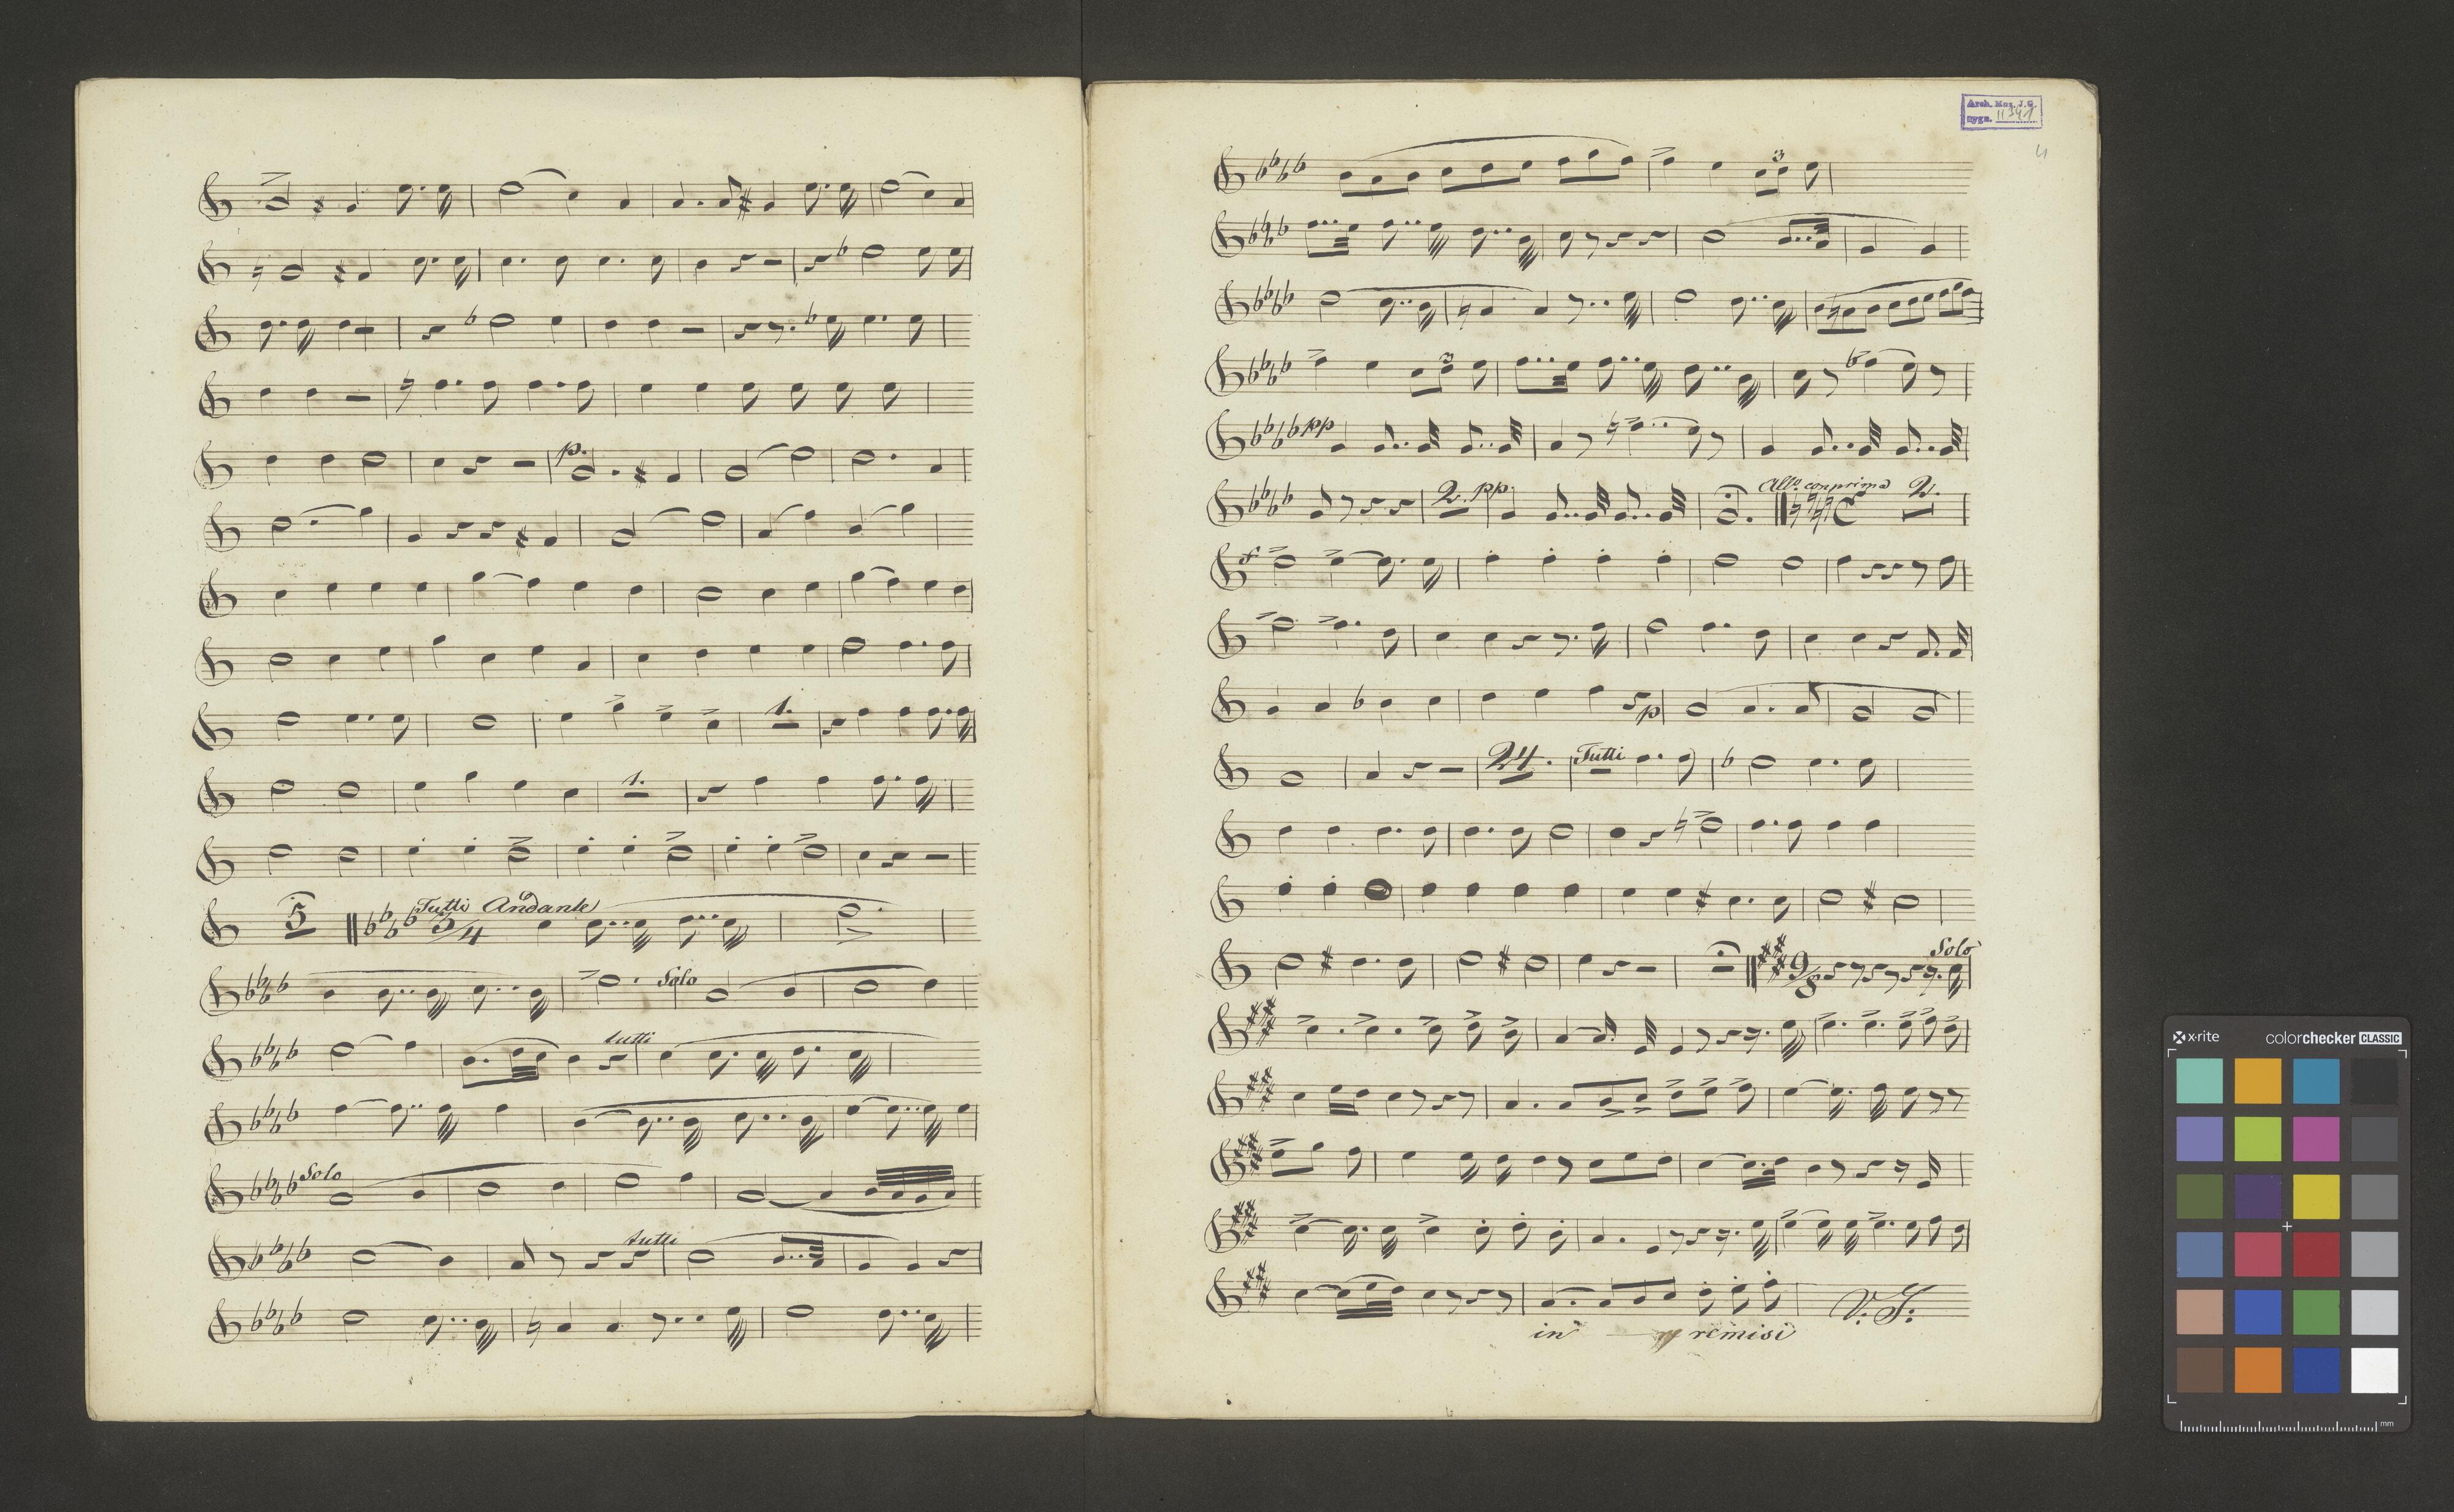 p.
1.
1.
5
Tutti Andante
3/4
Solo
tutti
Solo
tutti
Arch. Muz. J. G.
sygn. 11341
4
3
3
pp
2. pp.
Allo. con prima 2.
f
p
24. Tutti
Solo
9/8
in remisi
V. S.
x-rite colorchecker CLASSIC
mm